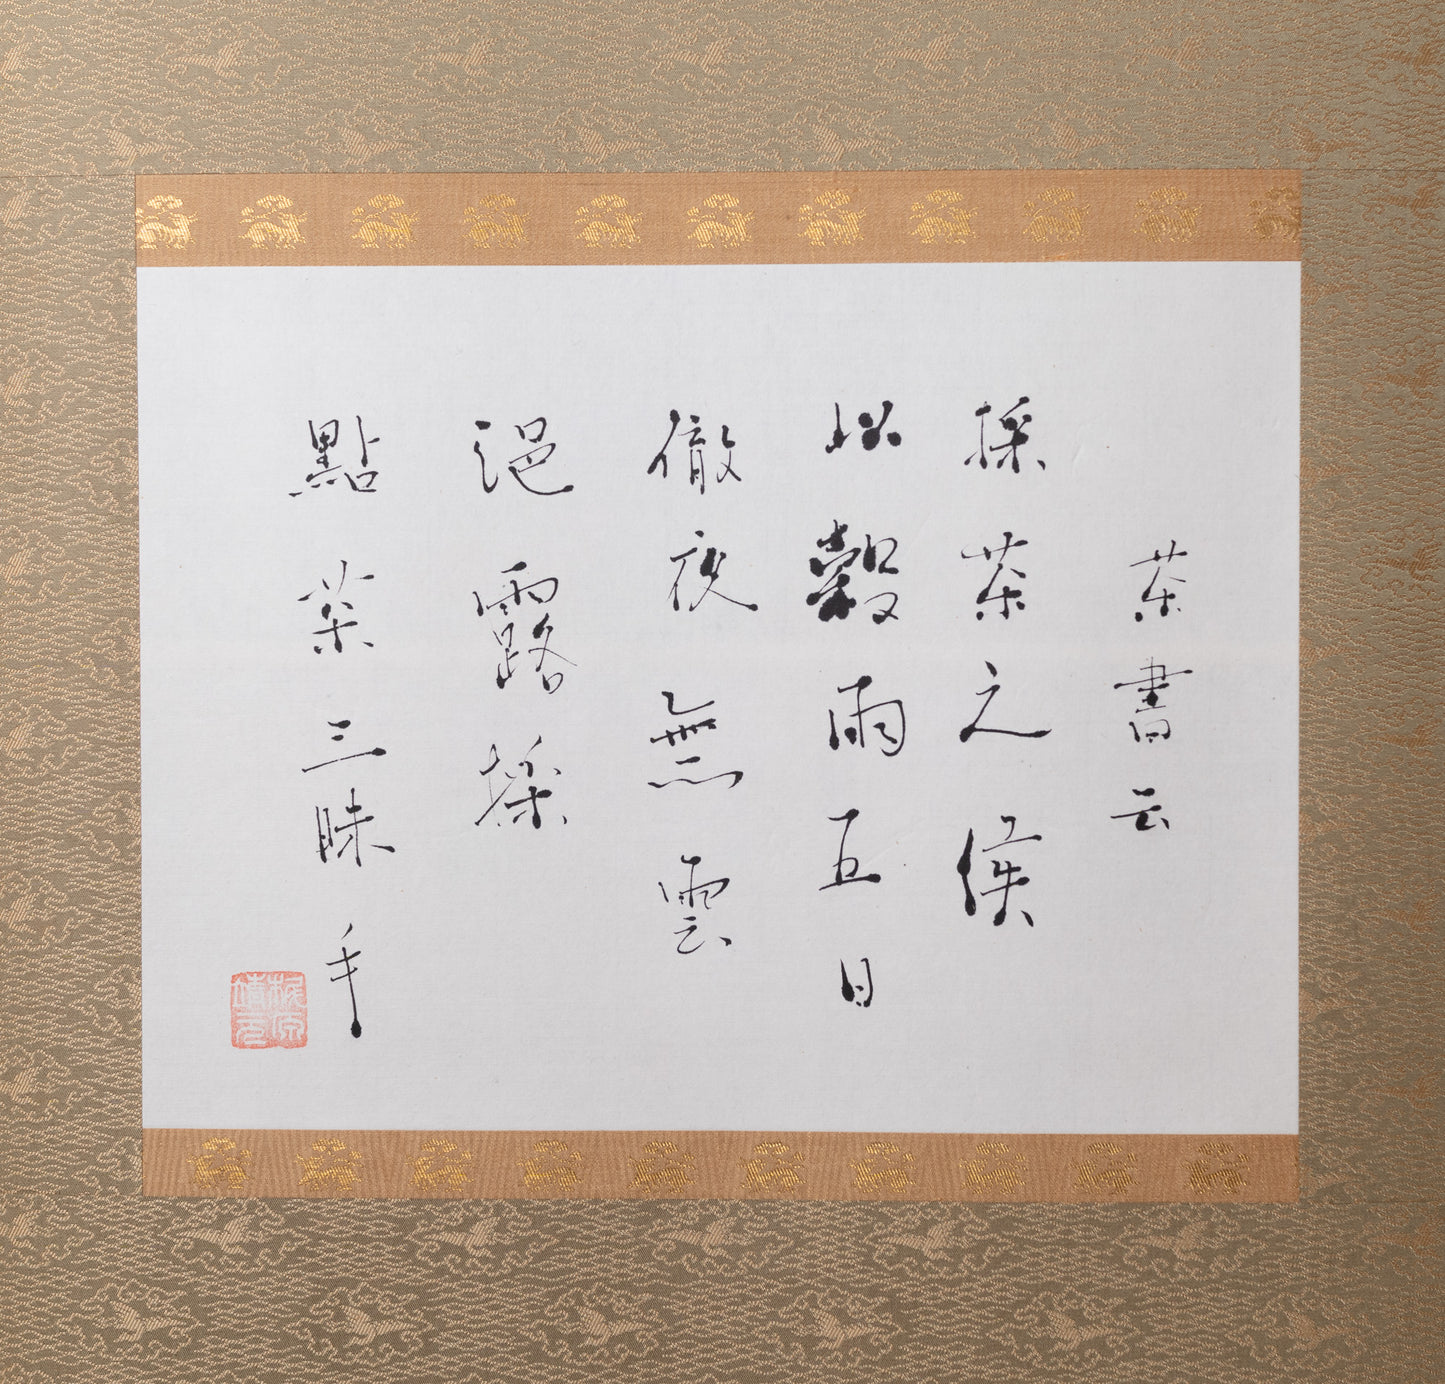 茶書云
採茶之候
以穀雨五日
徹夜無雲
浥露採
點茶三昧手
梶原
靖元